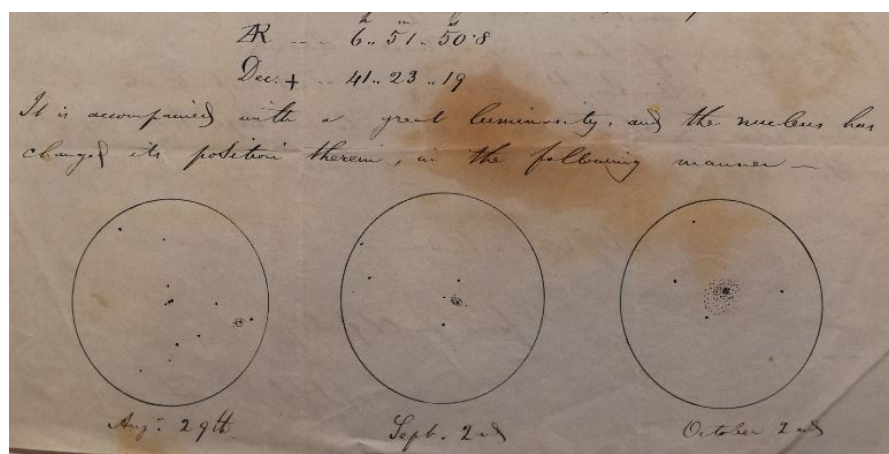 h m s
AR ... 6.. 51.. 50.8
Dec. + .. 41.. 23 .. 19
It is accompanied with a great luminosity, and the nucleus has
changed its position therein, in the following manner —
Augt. 29th
Sept. 2nd
October 2nd